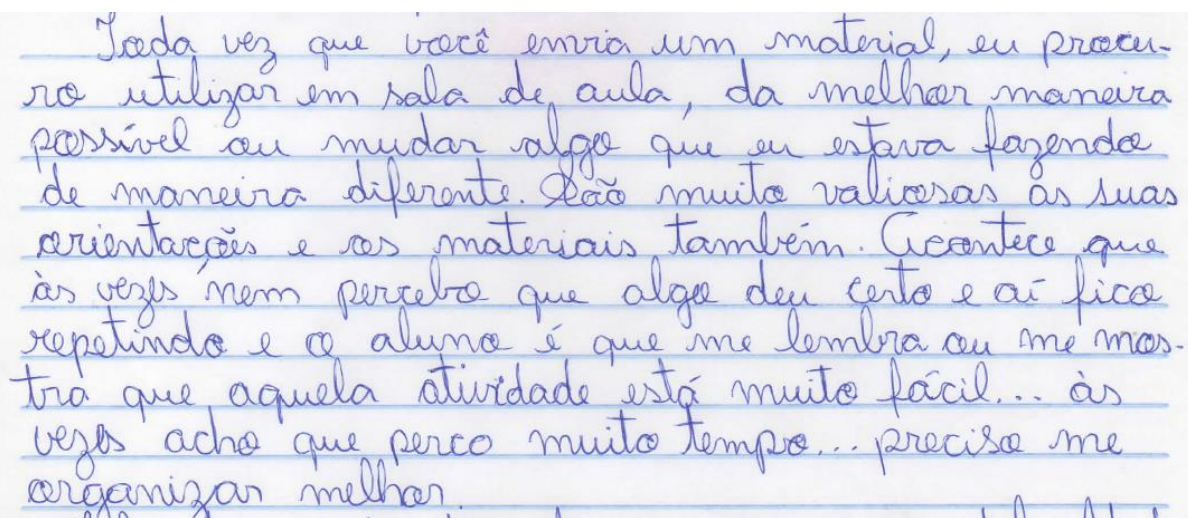 Toda vez que você envia um material, eu procu-
ro utilizar em sala de aula, da melhor maneira
possível ou mudar algo que eu estava fazendo
de maneira diferente. São muito valiosas as suas
orientações e os materiais também. Acontece que
às vezes nem percebo que algo deu certo e aí fico
repetindo e o aluno é que me lembra ou me mos-
tra que aquela atividade está muito fácil... às
vezes acho que perco muito tempo... preciso me
organizar melhor.